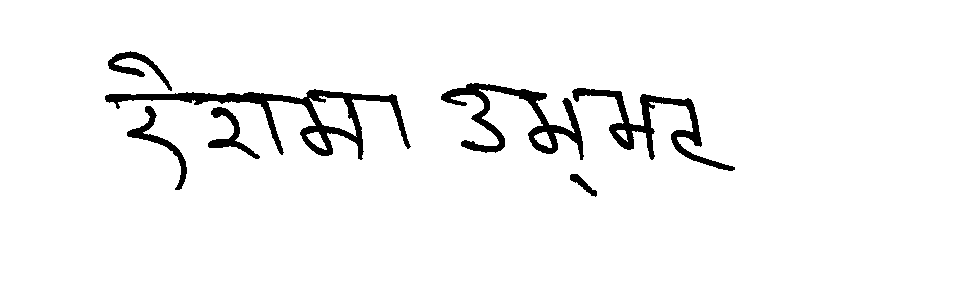 रेशमा उम्‌मट